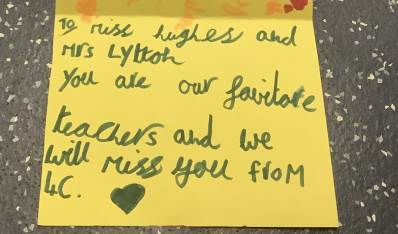 To miss hughes and
Mrs Lytton
You are our favitore
teachers and we
will miss you from
4C.